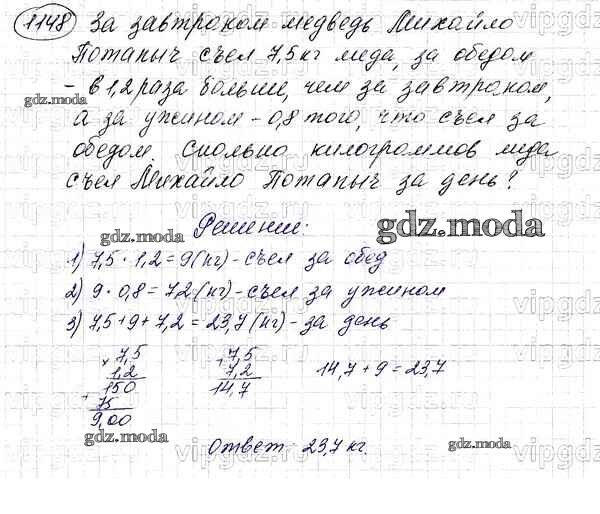 1148 За завтраком медведь Михайло
Потапыч съел 7,5 кг меда, за обедом
- в 1,2 раза больше, чем за завтраком,
а за ужином - 0,8 того, что съел за
обедом. Сколько килограммов меда
съел Михайло Потапыч за день?
Решение:
1) 7,5 · 1,2 = 9 (кг) - съел за обед
2) 9 · 0,8 = 7,2 (кг) - съел за ужином
3) 7,5 + 9 + 7,2 = 23,7 (кг) - за день
× 7,5
1,2
150
+ 75
9,00
+ 7,5
7,2
14,7
14,7 + 9 = 23,7
Ответ: 23,7 кг.
gdz.moda
gdz.moda
gdz.moda
gdz.moda
gdz.moda
gdz.moda
vipgdz.ru